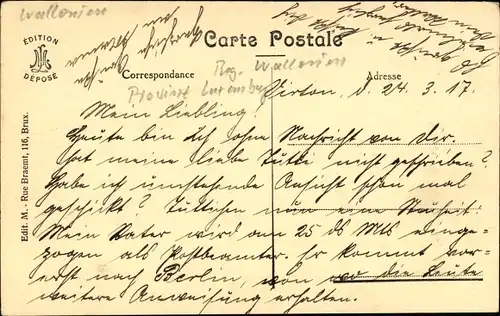 Wallonien
ÉDITION
DÉPOSÉ
Carte Postale
Correspondance
Adresse
Reg. Wallonien
Provinz Luxemburg
Edit. M. - Rue Braemt, 116, Brux.
Virton, d. 24. 3. 17.
Mein Liebling!
Heute bin ich ohne Nachricht von Dir.
Hat meine liebe Tutti nicht geschrieben?
Habe ich umstehende Ansicht schon mal
geschickt? Tuttichen nun eine Neuheit:
Mein Vater wird am 25 ds Mts einge-
zogen als Postbeamter. Er kommt vor-
erst nach Berlin, von wo die Leute
weitere Anweisung erhalten.